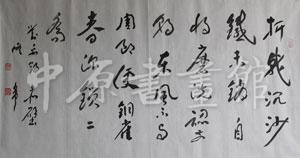 折戟沉沙
鐵未銷自
將磨洗認前
朝東風不與
周郎便銅雀
春深鎖二
喬
中原書畫館